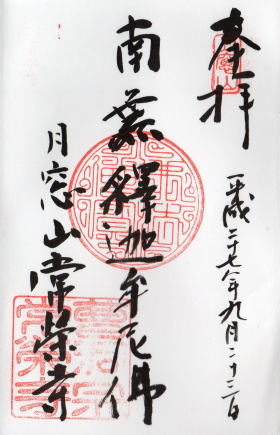 奉拝
平成二十七年九月二十三日
南無釋迦牟尼佛
月窓山常栄寺